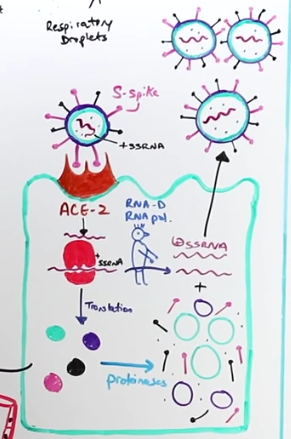 Respiratory
Droplets
S-spike
+ssRNA
ACE-2
RNA-D
RNA pol.
+ssRNA
⊕ssRNA
+
Translation
proteinases